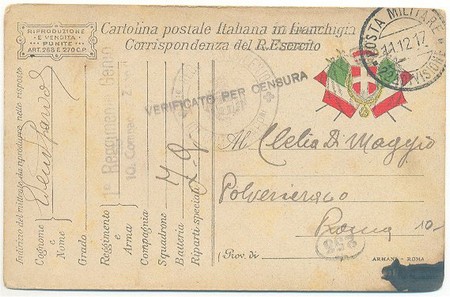 RIPRODUZIONE
E VENDITA
PUNITE
ART. 265 E 270 C.P.
Cartolina postale Italiana in franchigia
Corrispondenza del R. Esercito
POSTA MILITARE
11.12.17
DIVISIONE
VERIFICATO PER CENSURA
Indirizzo del mittente da riprodurre nelle risposte
Cognome e Nome
Grado
Reggimento e Arma
1° Reggimen Genio
Compagnia
10a Compag
Squadrone
Batteria
Riparti speciali
Z.G.
Al Clelia Di Maggio
Polverieraso
Roma 10-
(Prov. di
253
ARMANI - ROMA